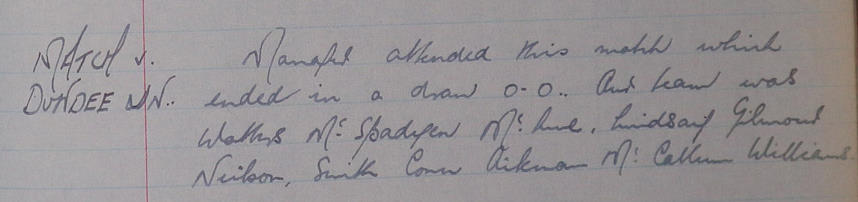 MATCH v. Manager attended this match which
DUNDEE UN.. ended in a draw 0-0.. Our team was
Watters McSpadyen Lindsay Gilmour
Neilson, Smith Conn Aikman McCallum Williams